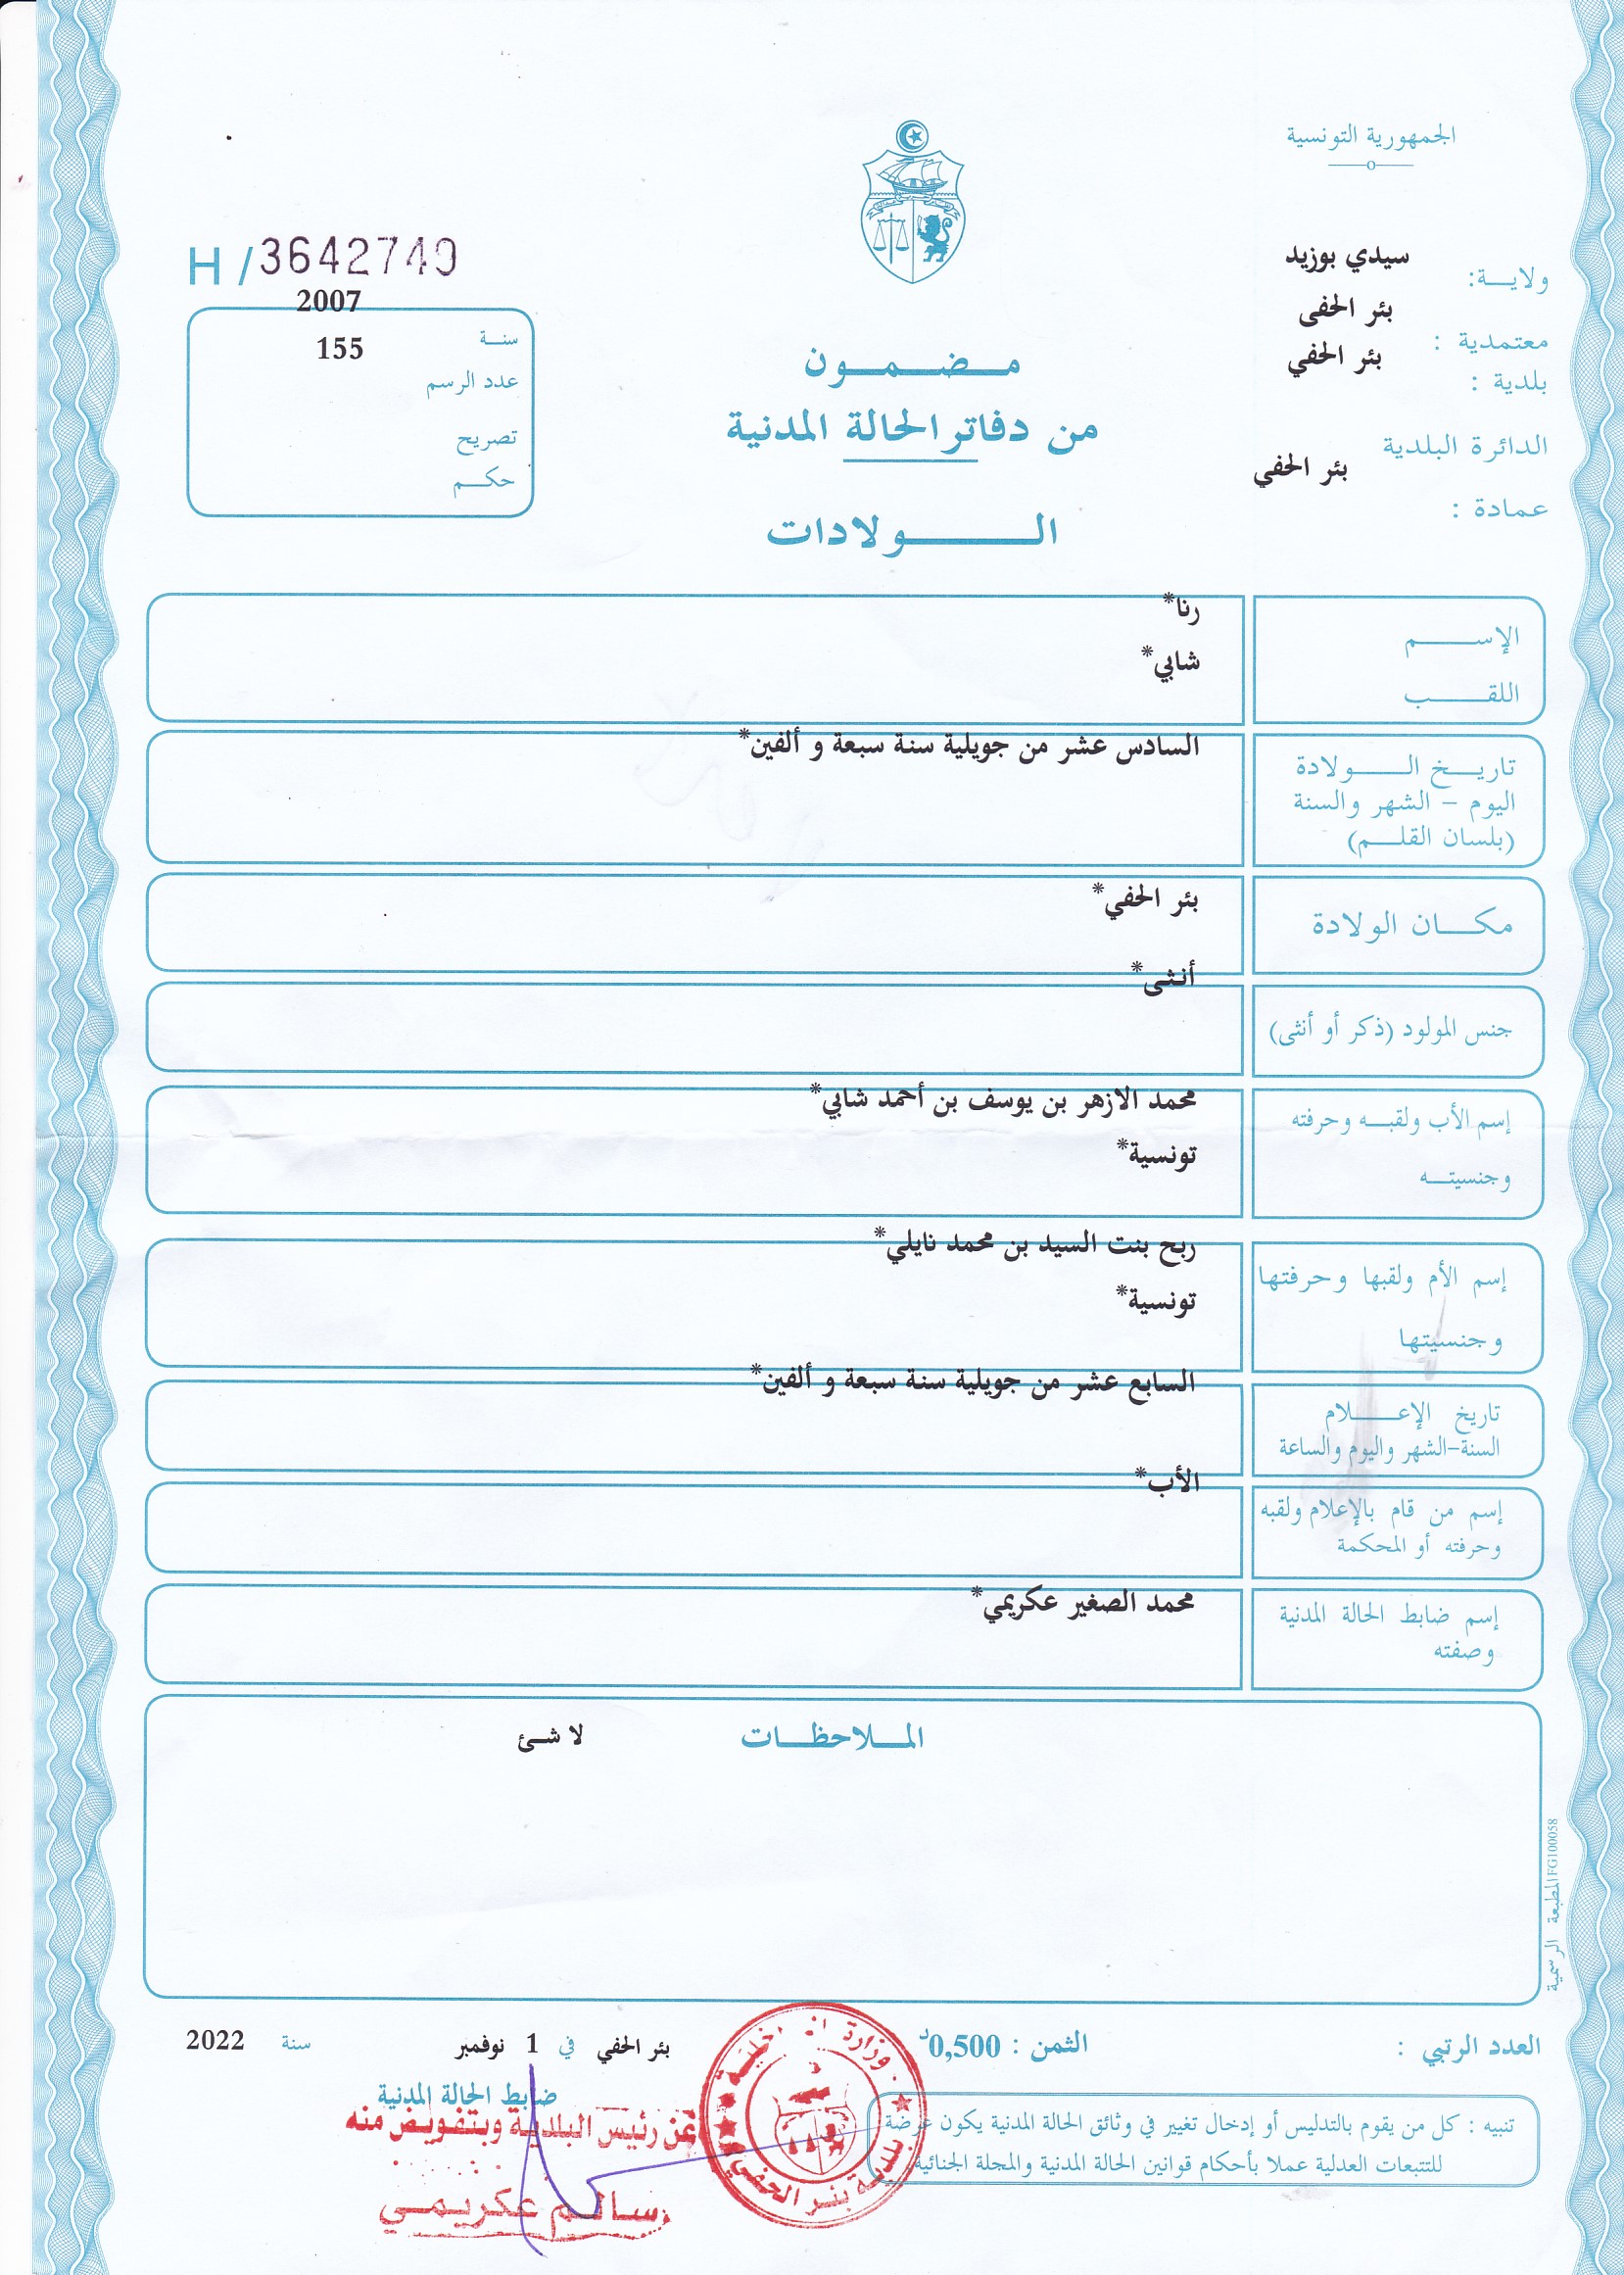 الجمهورية التونسية
ولاية: سيدي بوزيد
معتمدية : بئر الحفى
بلدية : بئر الحفي
الدائرة البلدية
عمادة : بئر الحفي
H /3642740
سنة 2007
عدد الرسم 155
تصريح
حكم
مضمون
من دفاتر الحالة المدنية
الولادات
الإسم رنا*
اللقب شابي*
تاريخ الولادة
اليوم - الشهر والسنة
(بلسان القلم)
السادس عشر من جويلية سنة سبعة و ألفين*
مكان الولادة بئر الحفي*
جنس المولود (ذكر أو أنثى) أنثى*
إسم الأب ولقبه وحرفته محمد الازهر بن يوسف بن أحمد شابي*
وجنسيته تونسية*
إسم الأم ولقبها وحرفتها ربح بنت السيد بن محمد نايلي*
وجنسيتها تونسية*
تاريخ الإعلام
السنة-الشهر واليوم والساعة
السابع عشر من جويلية سنة سبعة و ألفين*
إسم من قام بالإعلام ولقبه
وحرفته أو المحكمة
الأب*
إسم ضابط الحالة المدنية
وصفته
محمد الصغير عكريمي*
الملاحظات لا شئ
المطبعة الرسمية FG100058
العدد الرتبي :
الثمن : 0,500د
بئر الحفي في 1 نوفمبر سنة 2022
ضابط الحالة المدنية
عن رئيس البلدية وبتفويض منه
سالم عكريمي
وزارة
بلدية بئر الحفي
تنبيه : كل من يقوم بالتدليس أو إدخال تغيير في وثائق الحالة المدنية يكون عرضة
للتتبعات العدلية عملا بأحكام قوانين الحالة المدنية والمجلة الجنائية